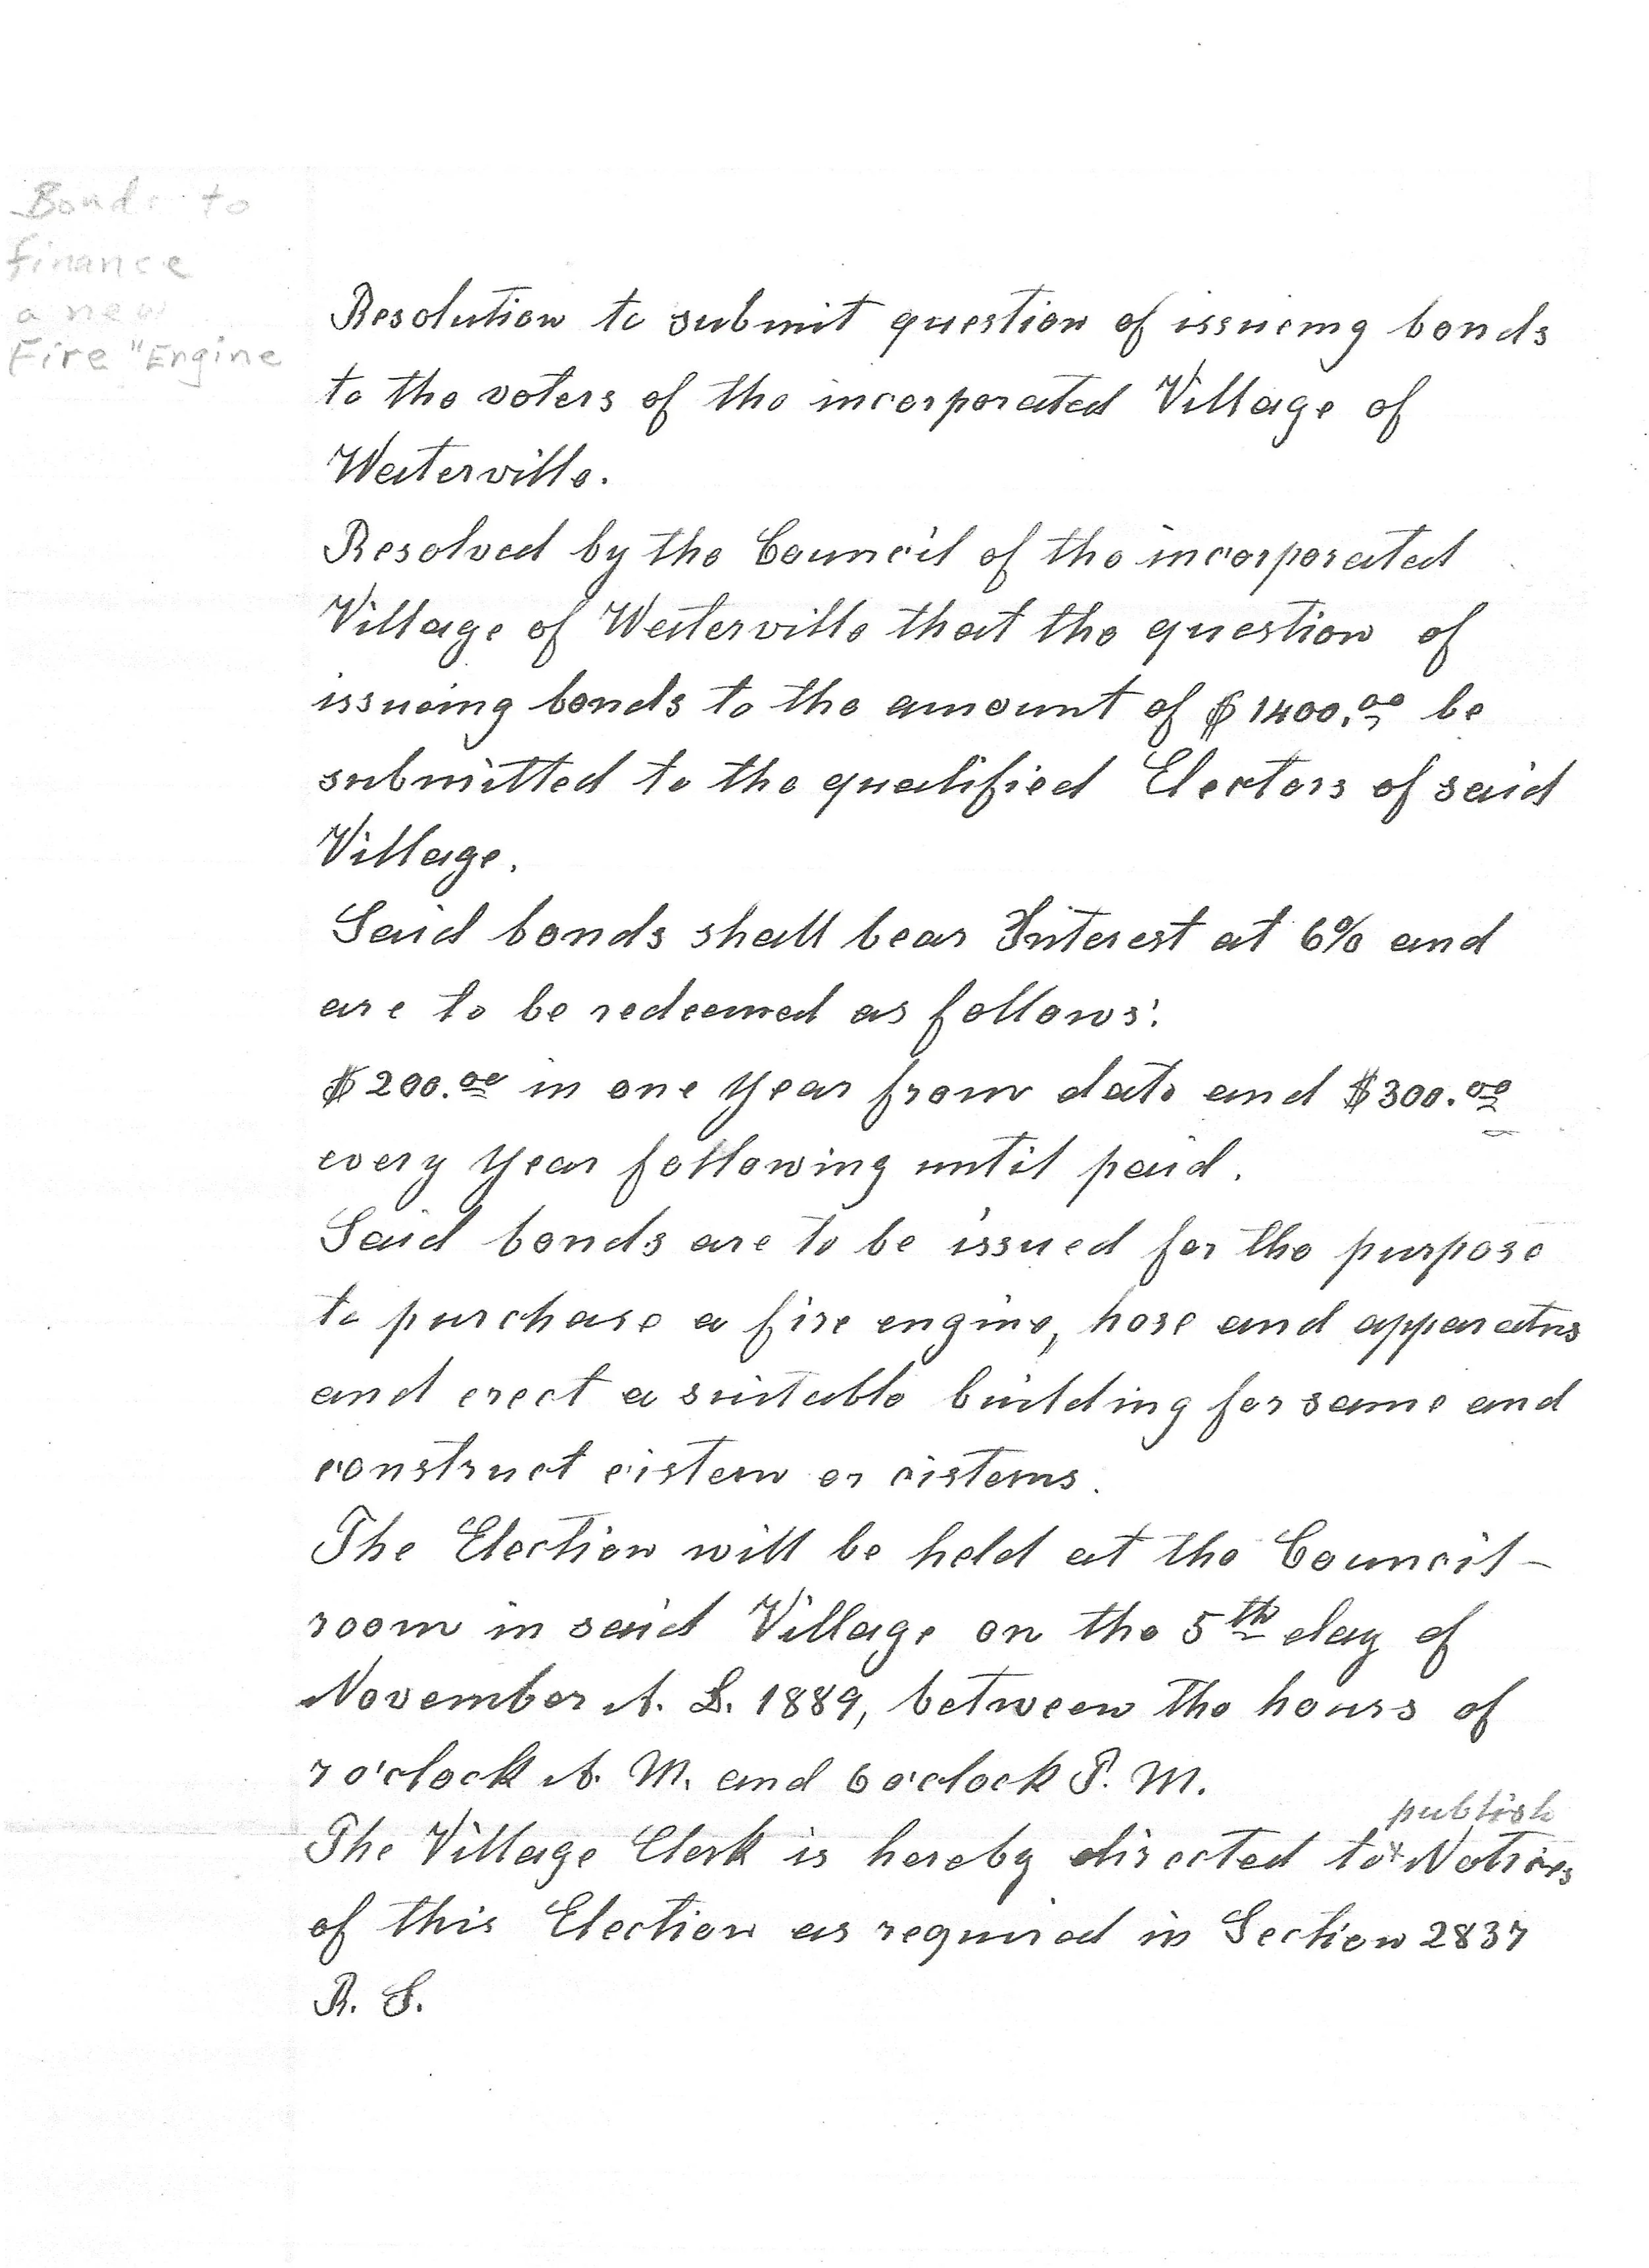 Bonds to
finance
a new
Fire "Engine
Resolution to submit question of issueing bonds
to the voters of the incorporated Village of
Waterville.
Resolved by the Council of the incorporated
Village of Waterville that the question of
issueing bonds to the amount of $1400.00 be
submitted to the qualified Electors of said
Village.
Said bonds shall bear Interest at 6% and
are to be redeemed as follows:
$200.00 in one year from date and $300.00
every year following until paid.
Said bonds are to be issued for the purpose
to purchase a fire engine, hose and apparatus
and erect a suitable building for same and
construct cistern or cisterns.
The Election will be held at the Council-
room in said Village on the 5th day of
November A. D. 1889, between the hours of
7 o'clock A. M. and 6 o'clock P. M.
publish
The Village Clerk is hereby directed to x Notices
of this Election as required in Section 2837
R. S.